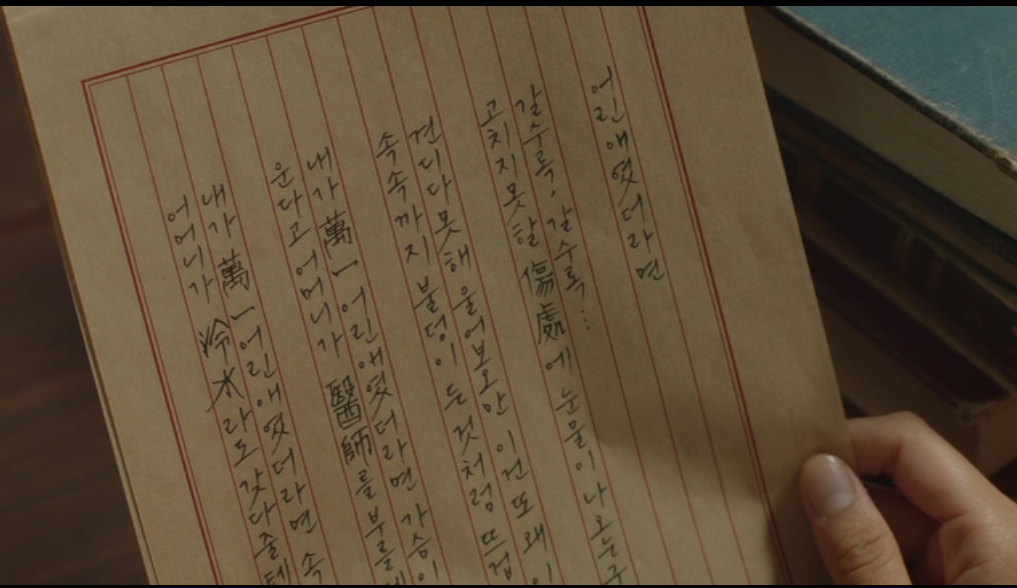 어린애였더라면
갈수록, 갈수록...
고치지못할 傷處에 눈물이 나오는구
견디다못해 울어보오만 이건 또 왜 이
속속까지 불덩이 든것처럼 뜨겁
내가 萬一 어린애였더라면 가슴이
운다고 어머니가 醫師를 부를
내가 萬一 어린애였더라면 속
어머니가 冷水라도 갖다줄테